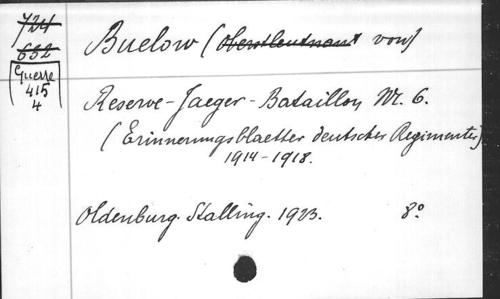 724
652
Guerre
415
4
Buelow (Oberstleutnant von)
Reserve-Jaeger-Bataillon Nr. 6.
(Erinnerungsblaetter deutscher Regimenter)
1914-1918.
Oldenburg. Stalling. 1923. 8º